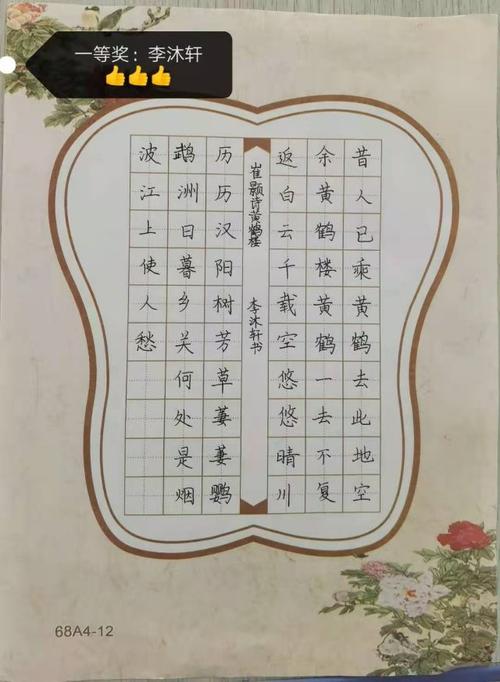 一等奖：李沐轩
👍👍👍
昔人已乘黄鹤去此地空
余黄鹤楼黄鹤一去不复
返白云千载空悠悠晴川
崔颢诗黄鹤楼 李沐轩书
历历汉阳树芳草萋萋鹦
鹉洲日暮乡关何处是烟
波江上使人愁
68A4-12